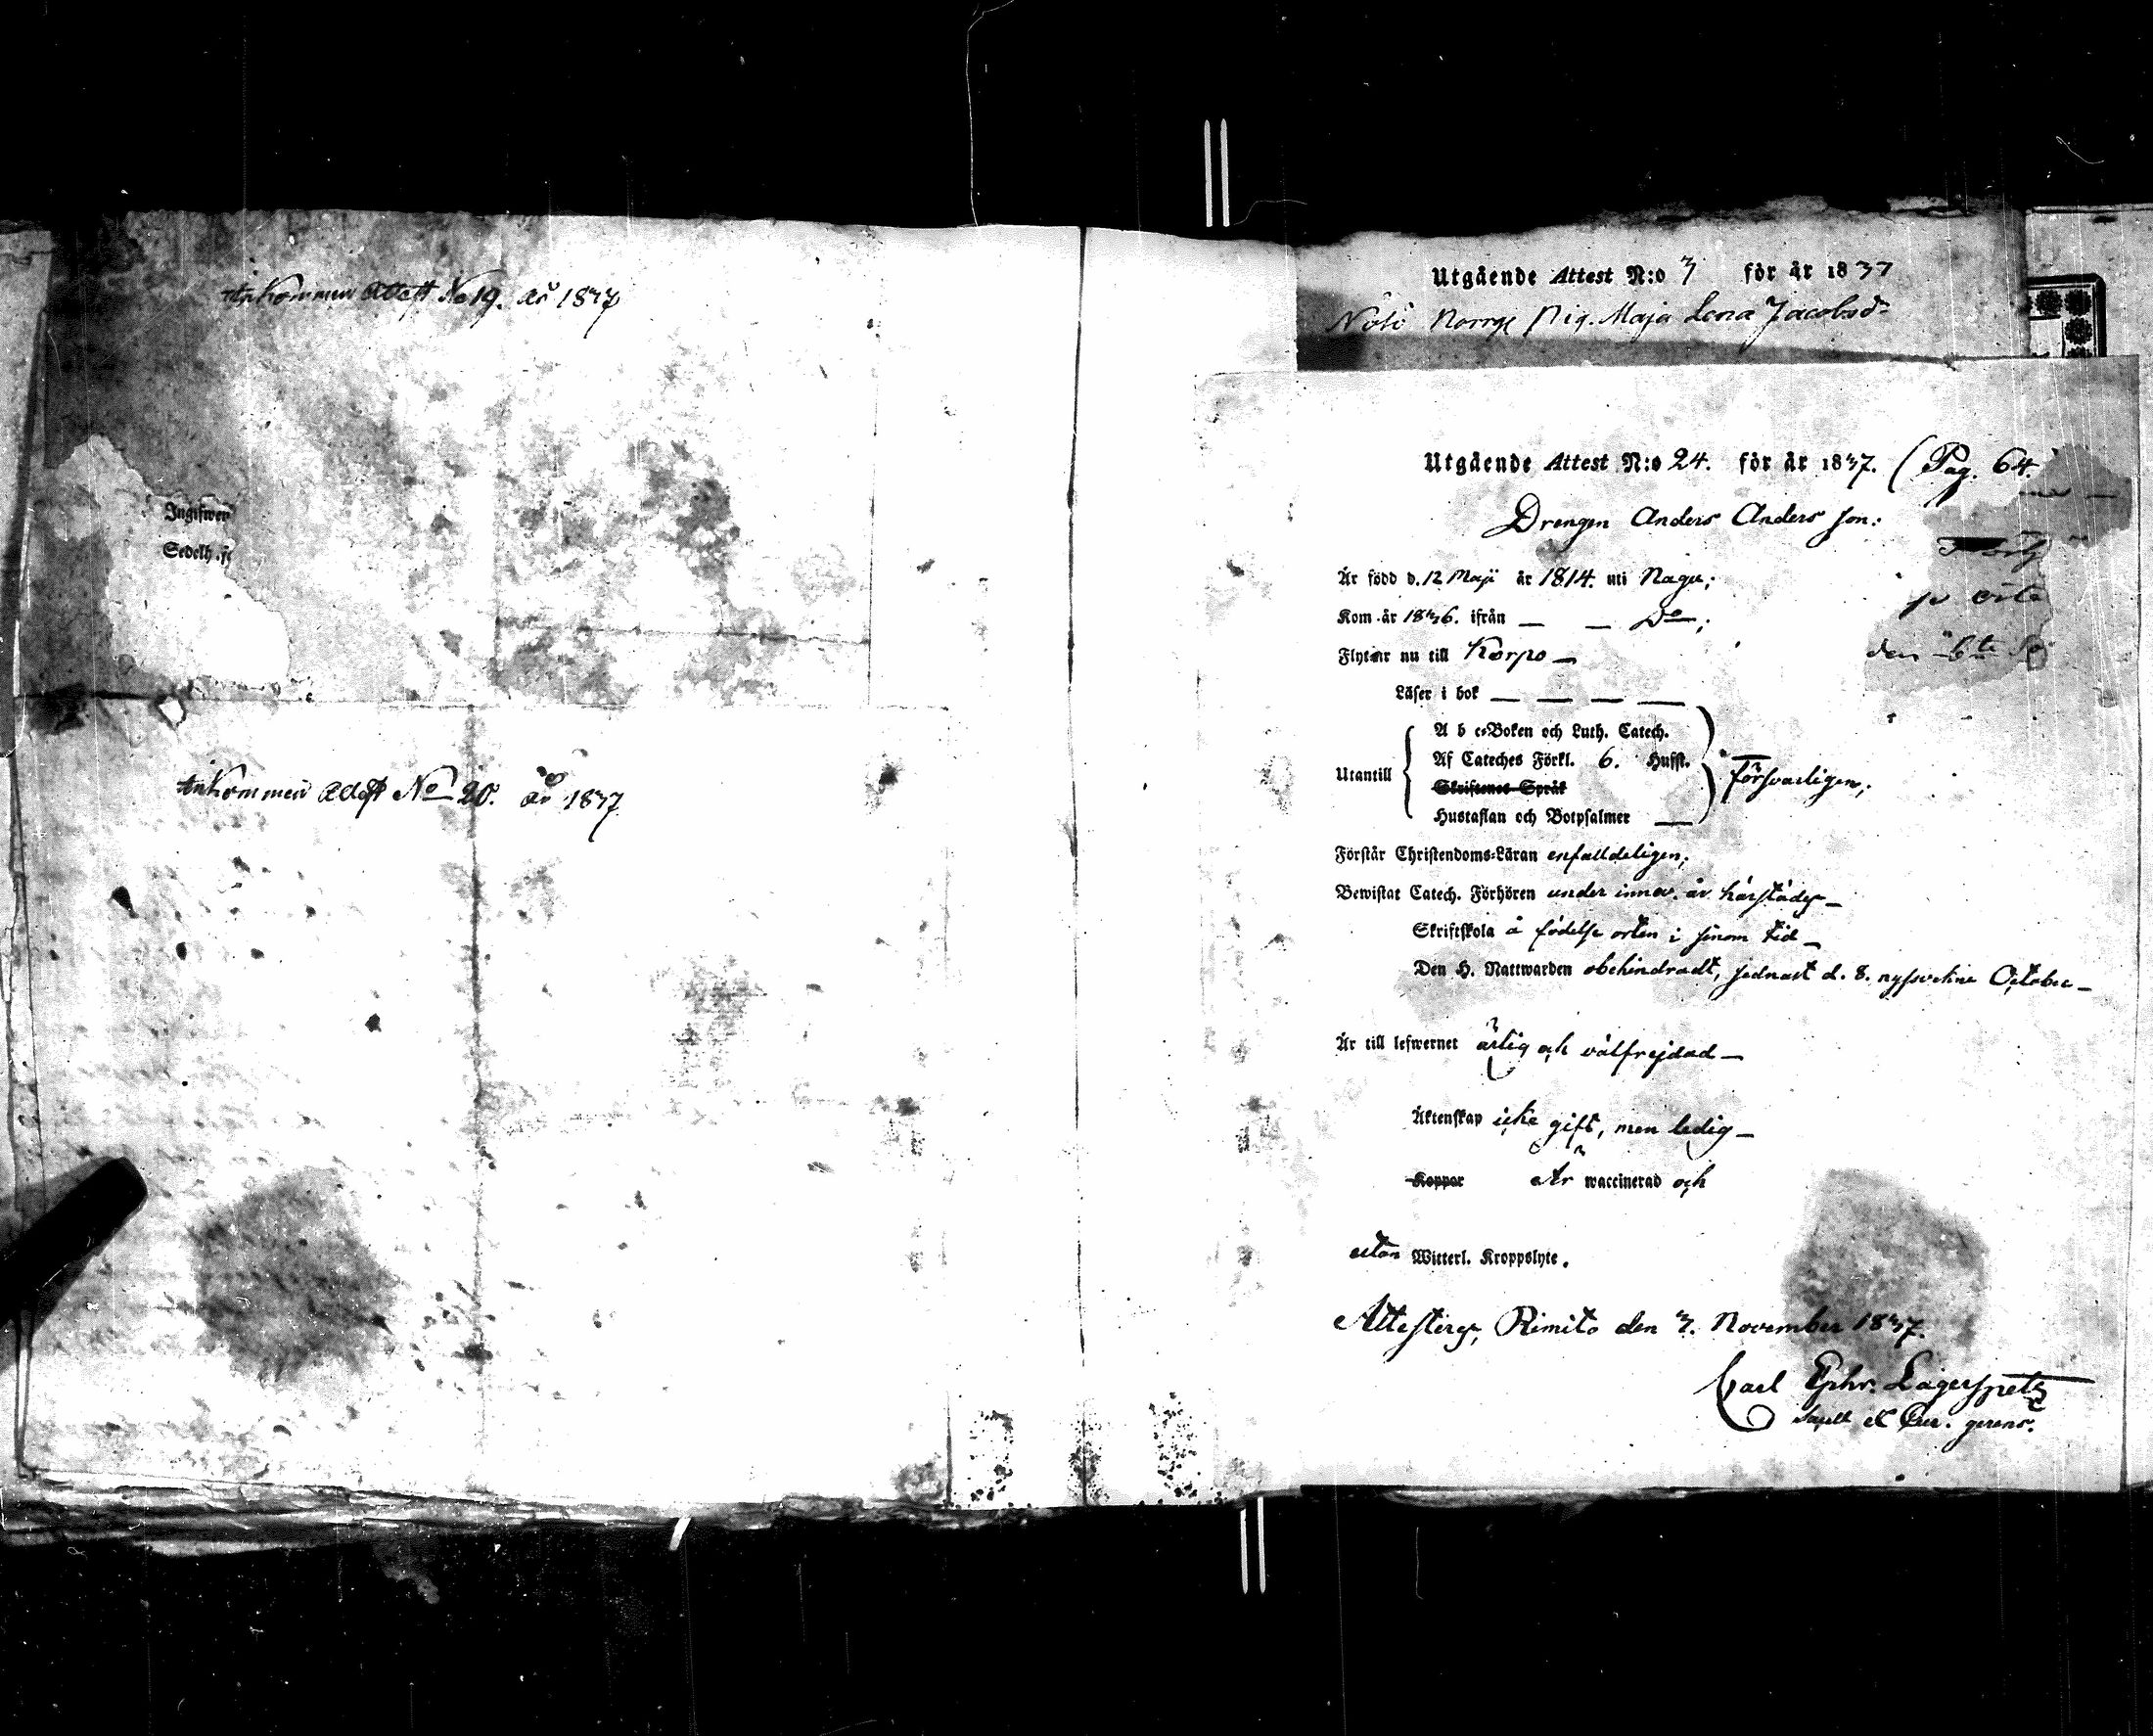 Inkommen Attest No 19. år 1837
Ingifwer
Sedelh.
Inkommen Attest No 20. år 1837
Utgående Attest N:o 3 för år 1837
Nötö Norrg. Pig. Maja Lena Jacobsd.
Utgående Attest N:o 24. för år 1837. (Pag. 64.
Drengen Anders Anders son:
Är född d. 12 Maji år 1814. uti Nagu;
Kom år 1836. ifrån — — Do;
Flyttar nu till Korpo —
Läser i bok — — — —
A b c-Boken och Luth. Catech.
Af Cateches Förkl. 6. Hufst.
Utantill försvarligen;
Skriftenes Språk
Hustaflan och Botpsalmer —
Förstår Christendoms-Läran enfalldeligen;
Bewistat Catech. Förhören under innev. år härstädes —
Skriftskola å födelse orten i sinom tid —
Den H. Nattwarden obehindradt, sednast d. 8. nyssvekne October —
den 6te
Är till lefwernet ärlig och välfrejdad —
Äktenskap icke gift, men ledig —
Koppor Är waccinerad och
utan Witterl. Kroppslyte.
Attesteras, Rimito den 3. November 1837.
Carl Ephr. Lagerspetz
Sacell. & Cur. gerens.